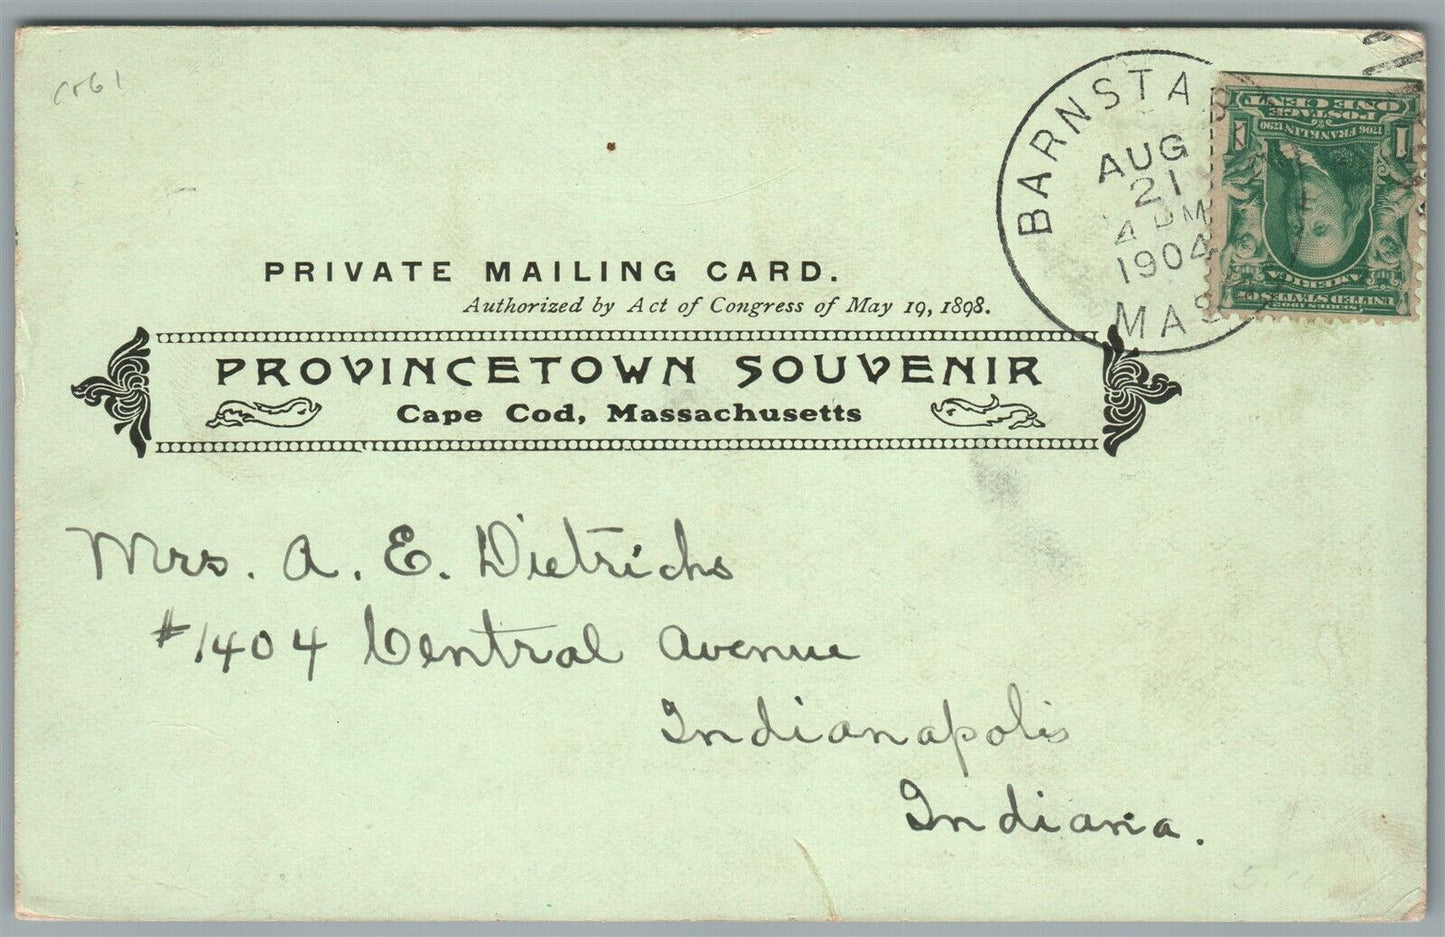 BARNSTAB
AUG
21
4 PM
1904
MASS
ONE CENT
POSTAGE
1706 FRANKLIN 1790
1
1
AMERICA
UNITED STATES OF
PRIVATE MAILING CARD.
Authorized by Act of Congress of May 19, 1898.
PROVINCETOWN SOUVENIR
Cape Cod, Massachusetts
Mrs. A. E. Dietrichs
#1404 Central Avenue
Indianapolis
Indiana.